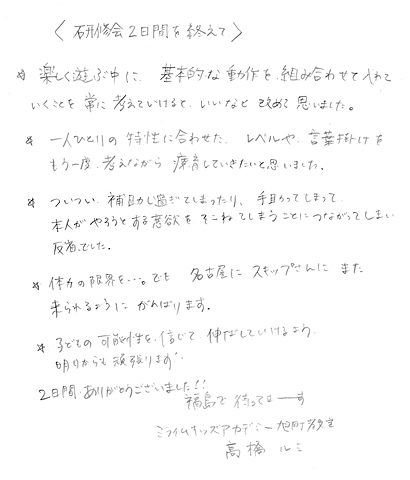 〈 研修会2日間を終えて 〉
* 楽しく遊ぶ中に、基本的な動作を組み合わせて入れて
いくことを常に考えていけると、いいなと改めて思いました。
* 一人ひとりの特性に合わせた、レベルや、言葉掛けを
もう一度、考えながら療育していきたいと思いました。
* ついつい、補助し過ぎてしまったり、手伝ってしまって
本人がやろうとする意欲をそこねてしまうことにつながってしまい
反省でした。
* 体力の限界を…。でも 名古屋に スキップさんに また
来られるように がんばります。
* 子どもの可能性を、信じて、伸ばしていけるよう、
明日からも頑張ります。
2日間、ありがとうございました!!
福島で 待ってまーす
ミライムキッズアカデミー旭町教室
高橋 ルミ